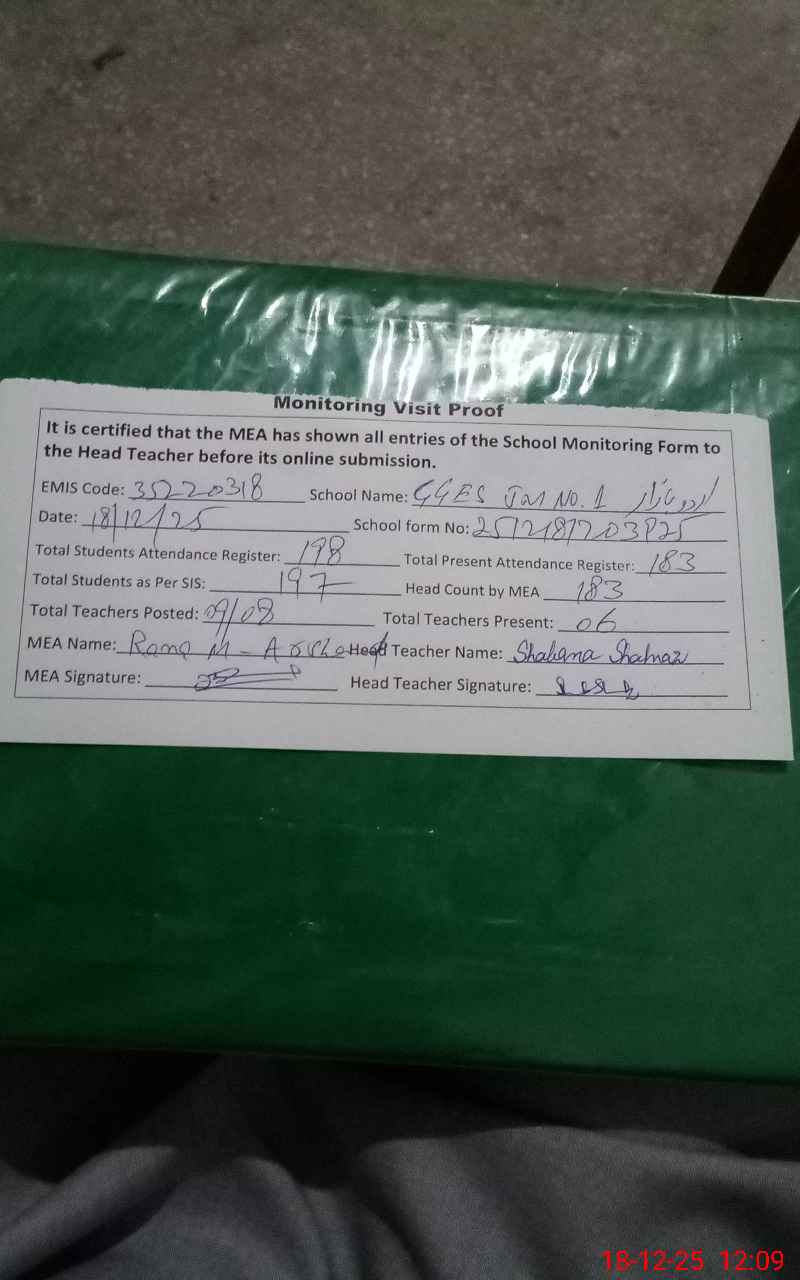 Monitoring Visit Proof
It is certified that the MEA has shown all entries of the School Monitoring Form to
the Head Teacher before its online submission.
EMIS Code: 35220318 School Name: GGES JM No. 1 اردو بازار
Date: 18/12/25 School form No: 2512187203825
Total Students Attendance Register: 198 Total Present Attendance Register: 183
Total Students as Per SIS: 197 Head Count by MEA 183
Total Teachers Posted: 09/08 Total Teachers Present: 06
MEA Name: Rana M - Head Teacher Name: Shahana Shahnaz
MEA Signature: Head Teacher Signature:
18-12-25 12:09